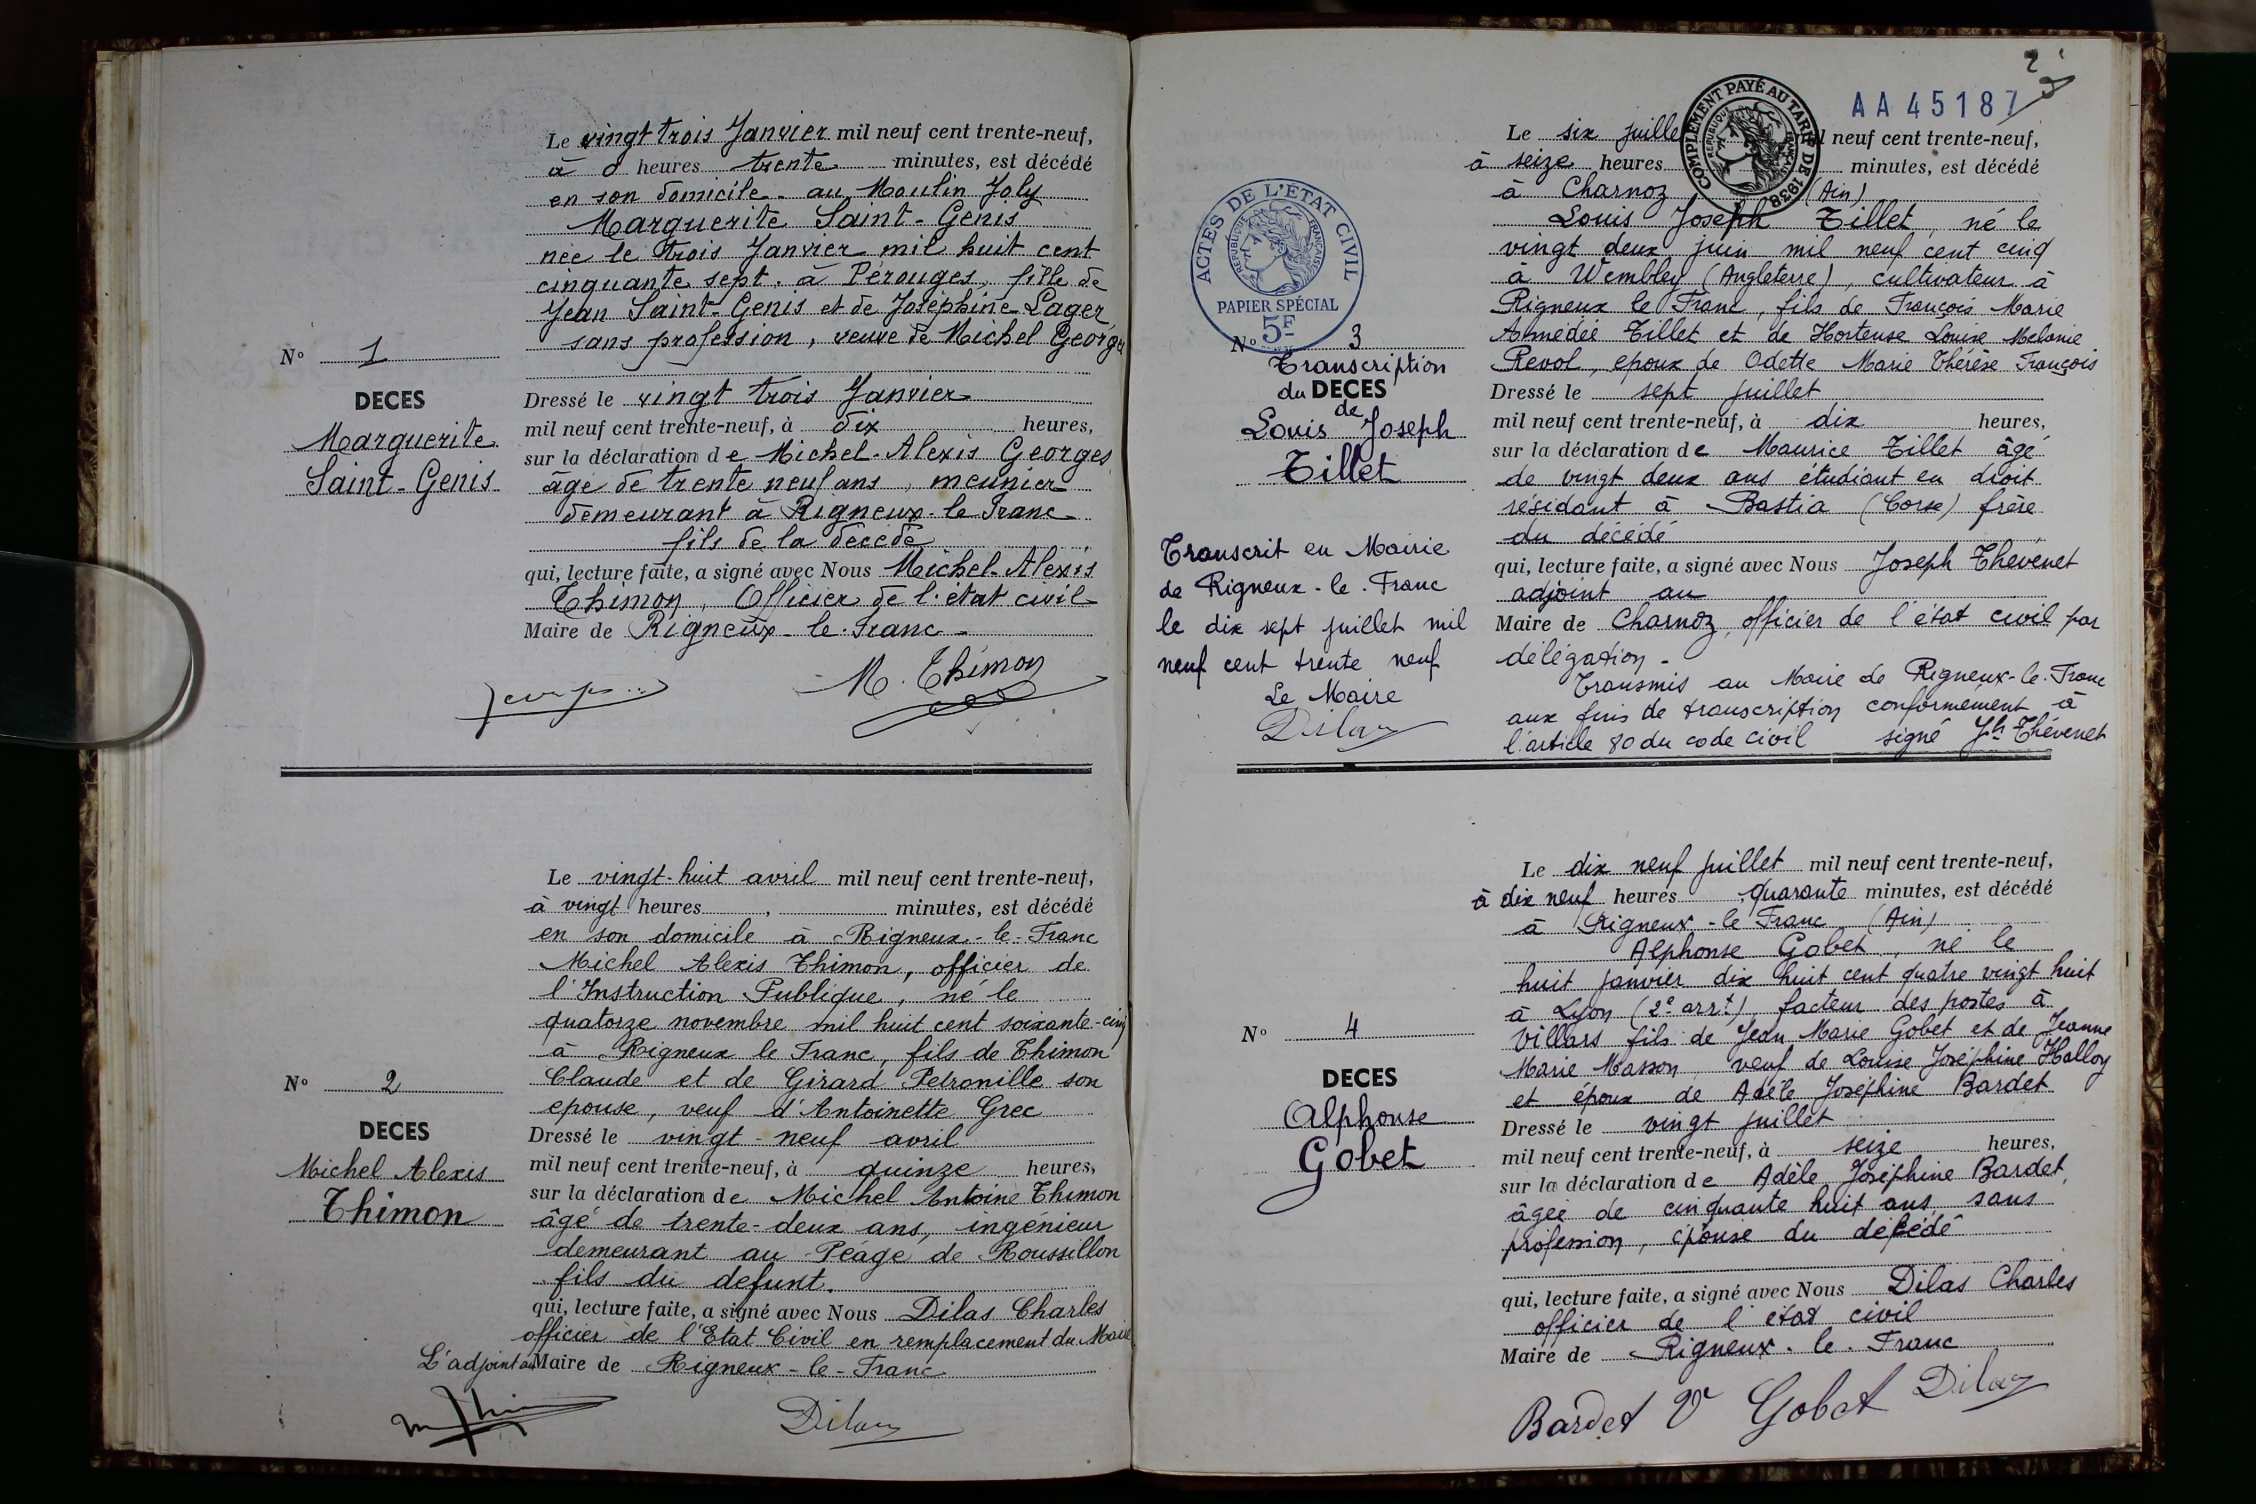 Le vingt trois Janvier mil neuf cent trente-neuf,
à 0 heures trente minutes, est décédé
en son domicile au Moulin Joly
Marguerite Saint-Genis
née le trois Janvier mil huit cent
cinquante sept. à Pérouges, fille de
Jean Saint-Genis et de Joséphine Lager
sans profession, veuve de Michel Georges
N° 1
DECES
Marguerite
Saint-Genis
Dressé le vingt trois Janvier
mil neuf cent trente-neuf, à dix heures,
sur la déclaration de Michel-Alexis Georges
âgé de trente neuf ans, meunier
demeurant à Rigneux-le Franc
fils de la décédé
qui, lecture faite, a signé avec Nous Michel-Alexis
Thimon, Officier de l'état civil
Maire de Rigneux-le-Franc-
M. Thimon
Le vingt-huit avril mil neuf cent trente-neuf,
à vingt heures, minutes, est décédé
en son domicile à Rigneux-le-Franc
Michel Alexis Thimon, officier de
l'Instruction Publique, né le
quatorze novembre mil huit cent soixante-cinq
à Rigneux le Franc, fils de Thimon
Claude et de Girard Petronille son
epouse, veuf d'Antoinette Grec
N° 2
DECES
Michel Alexis
Thimon
Dressé le vingt-neuf avril
mil neuf cent trente-neuf, à quinze heures,
sur la déclaration de Michel Antoine Thimon
âgé de trente-deux ans, ingénieur
demeurant au Péage de Roussillon
fils du defunt.
qui, lecture faite, a signé avec Nous Dilas Charles
officier de l'Etat Civil en remplacement du Maire
L'adjoint au Maire de Rigneux-le-Franc
Dilas
2
AA 45187
COMPLEMENT PAYÉ AU TARIF DE 1938
REPUBLIQUE FRANÇAISE
Le six juille l neuf cent trente-neuf,
à seize heures minutes, est décédé
à Charnoz (Ain)
Louis Joseph Tillet, né le
vingt deux juin mil neuf cent cinq
à Wembley (Angleterre), cultivateur à
Rigneux le Franc, fils de François Marie
Amédée Tillet et de Hortense Louise Melanie
Revol, epoux de Odette Marie Thérèse François
ACTES DE L'ETAT CIVIL
REPUBLIQUE FRANÇAISE
PAPIER SPÉCIAL
5F
N° 3
Transcription
du DECES
de
Louis Joseph
Tillet
Transcrit en Mairie
de Rigneux-le-Franc
le dix sept juillet mil
neuf cent trente neuf
Le Maire
Dilas
Dressé le sept juillet
mil neuf cent trente-neuf, à dix heures,
sur la déclaration de Maurice Tillet âgé
de vingt deux ans étudiant en droit
résidant à Bastia (Corse) frère
du décédé
qui, lecture faite, a signé avec Nous Joseph Thévenet
adjoint au
Maire de Charnoz, officier de l'état civil par
délégation-
Transmis au Maire de Rigneux-le-Franc
aux fins de transcription conformément à
l'article 80 du code civil signé Jh Thévenet
Le dix neuf juillet mil neuf cent trente-neuf,
à dix neuf heures quarante minutes, est décédé
à Rigneux-le Franc (Ain)
Alphonse Gobet, né le
huit janvier dix huit cent quatre vingt huit
à Lyon (2e arrt) facteur des postes à
Villars fils de Jean Marie Gobet et de Jeanne
Marie Masson, veuf de Louise Joséphine Halloy
et époux de Adèle Joséphine Bardet
N° 4
DECES
Alphonse
Gobet
Dressé le vingt juillet
mil neuf cent trente-neuf, à seize heures,
sur la déclaration de Adèle Joséphine Bardet,
âgée de cinquante huit ans, sans
profession, épouse du décédé
qui, lecture faite, a signé avec Nous Dilas Charles
officier de l'état civil
Maire de Rigneux-le-Franc
Bardet Ve Gobet Dilas